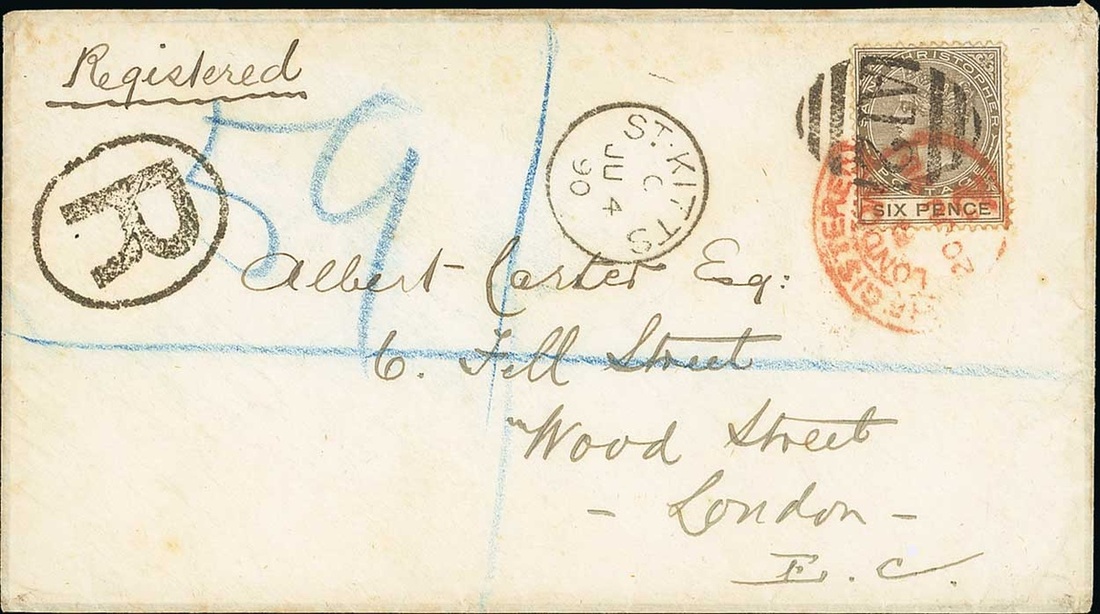 Registered
R
59
ST. KITTS
C
JU 4
90
CHRISTOPHER
POSTA
SIX PENCE
A12
REGISTERED
LONDON
20
Albert Carter Esq:
6. Fell Street
Wood Street
- London -
E. C.